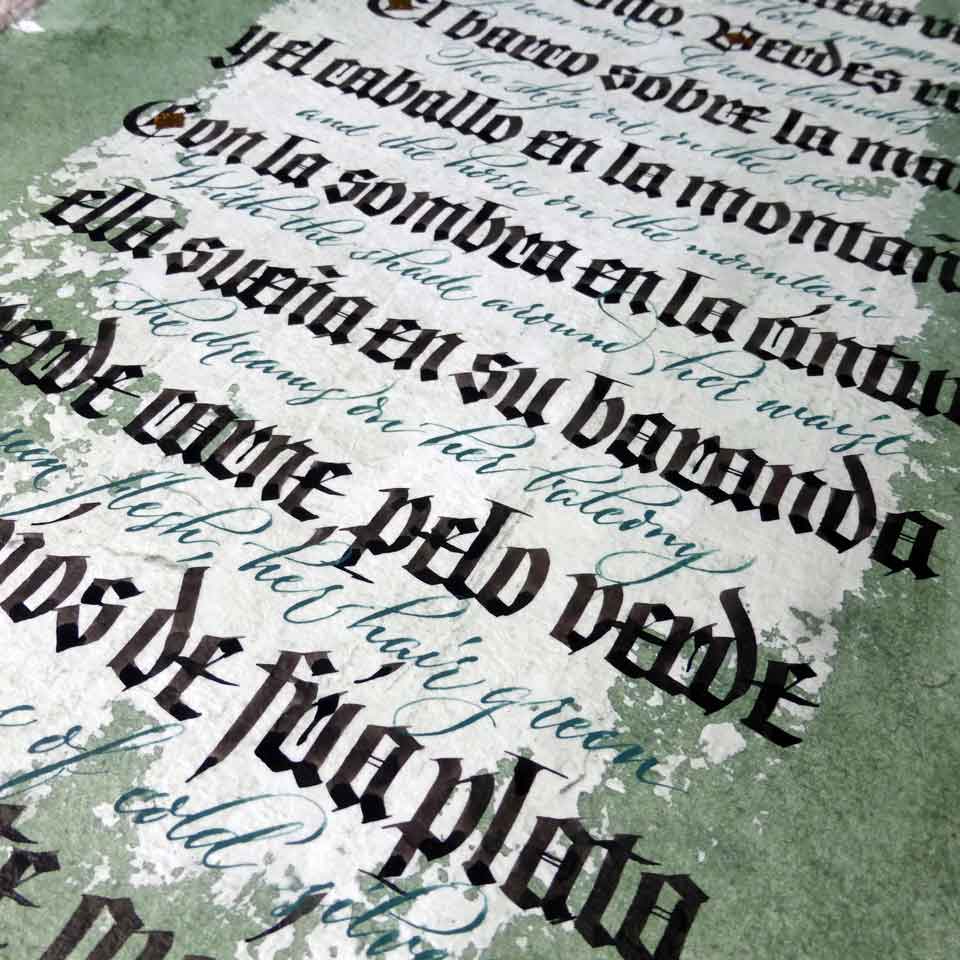 ento. Verdes
wind. Green branches
El barco sobre la mar
The ship out on the sea
y el caballo en la montañ
and the horse on the mountain
Con la sombra en la cintur
With the shade around her waist
ella sueña en su baranda
she dreams on her balcony
erde carne, pelo verde
een flesh, her hair green
jos de fría plata
of cold silve